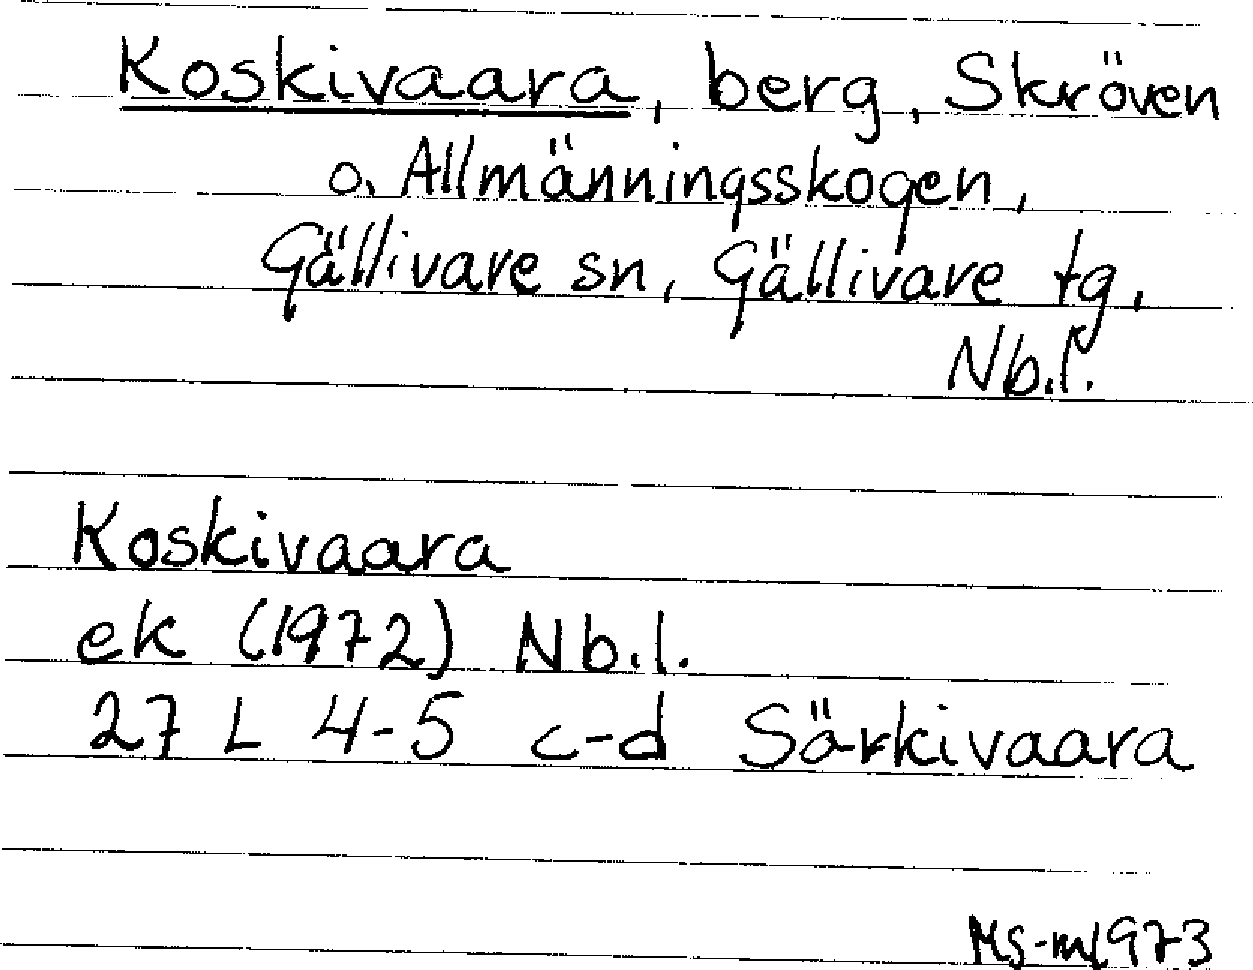 Koskivaara, berg, Skröven
o. Allmänningsskogen,
Gällivare sn, Gällivare tg,
Nb.l.
Koskivaara
ek (1972) Nb.l.
27 L 4-5 c-d Särkivaara
Ms-m 1973